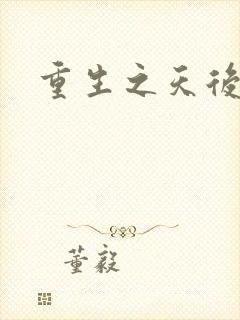 重生之天後
董毅